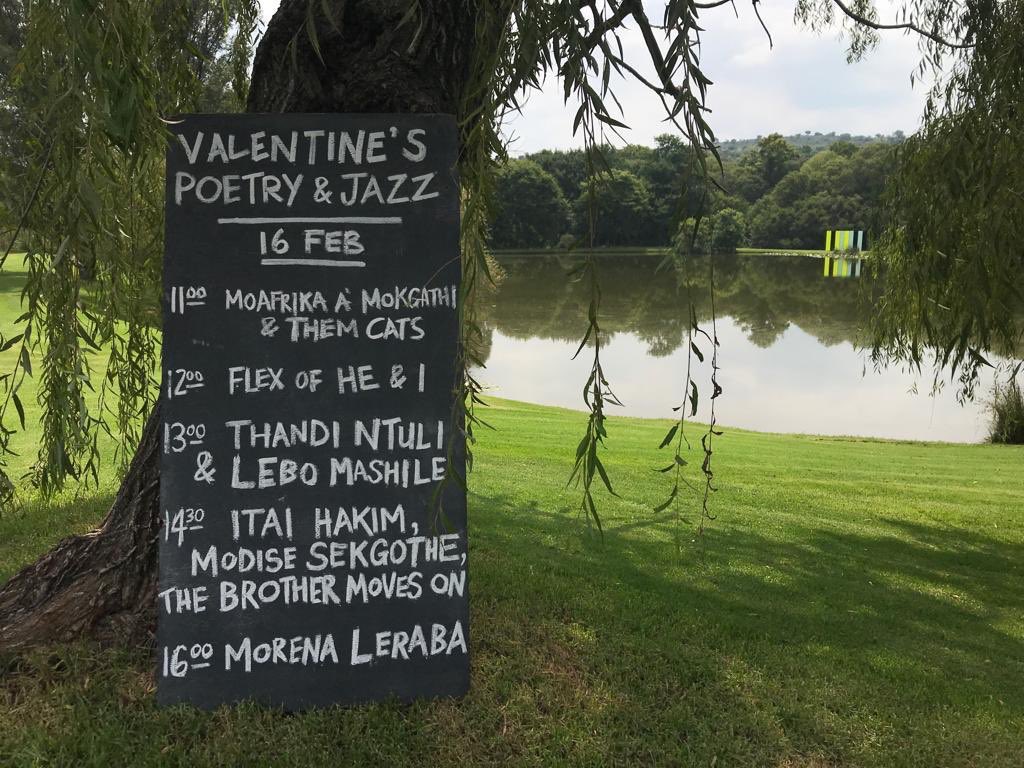 VALENTINE'S
POETRY & JAZZ
16 FEB
11:00 MOAFRIKA À MOKGATHI
& THEM CATS
12:00 FLEX OF HE & I
13:00 THANDI NTULI
& LEBO MASHILE
14:30 ITAI HAKIM,
MODISE SEKGOTHE,
THE BROTHER MOVES ON
16:00 MORENA LERABA